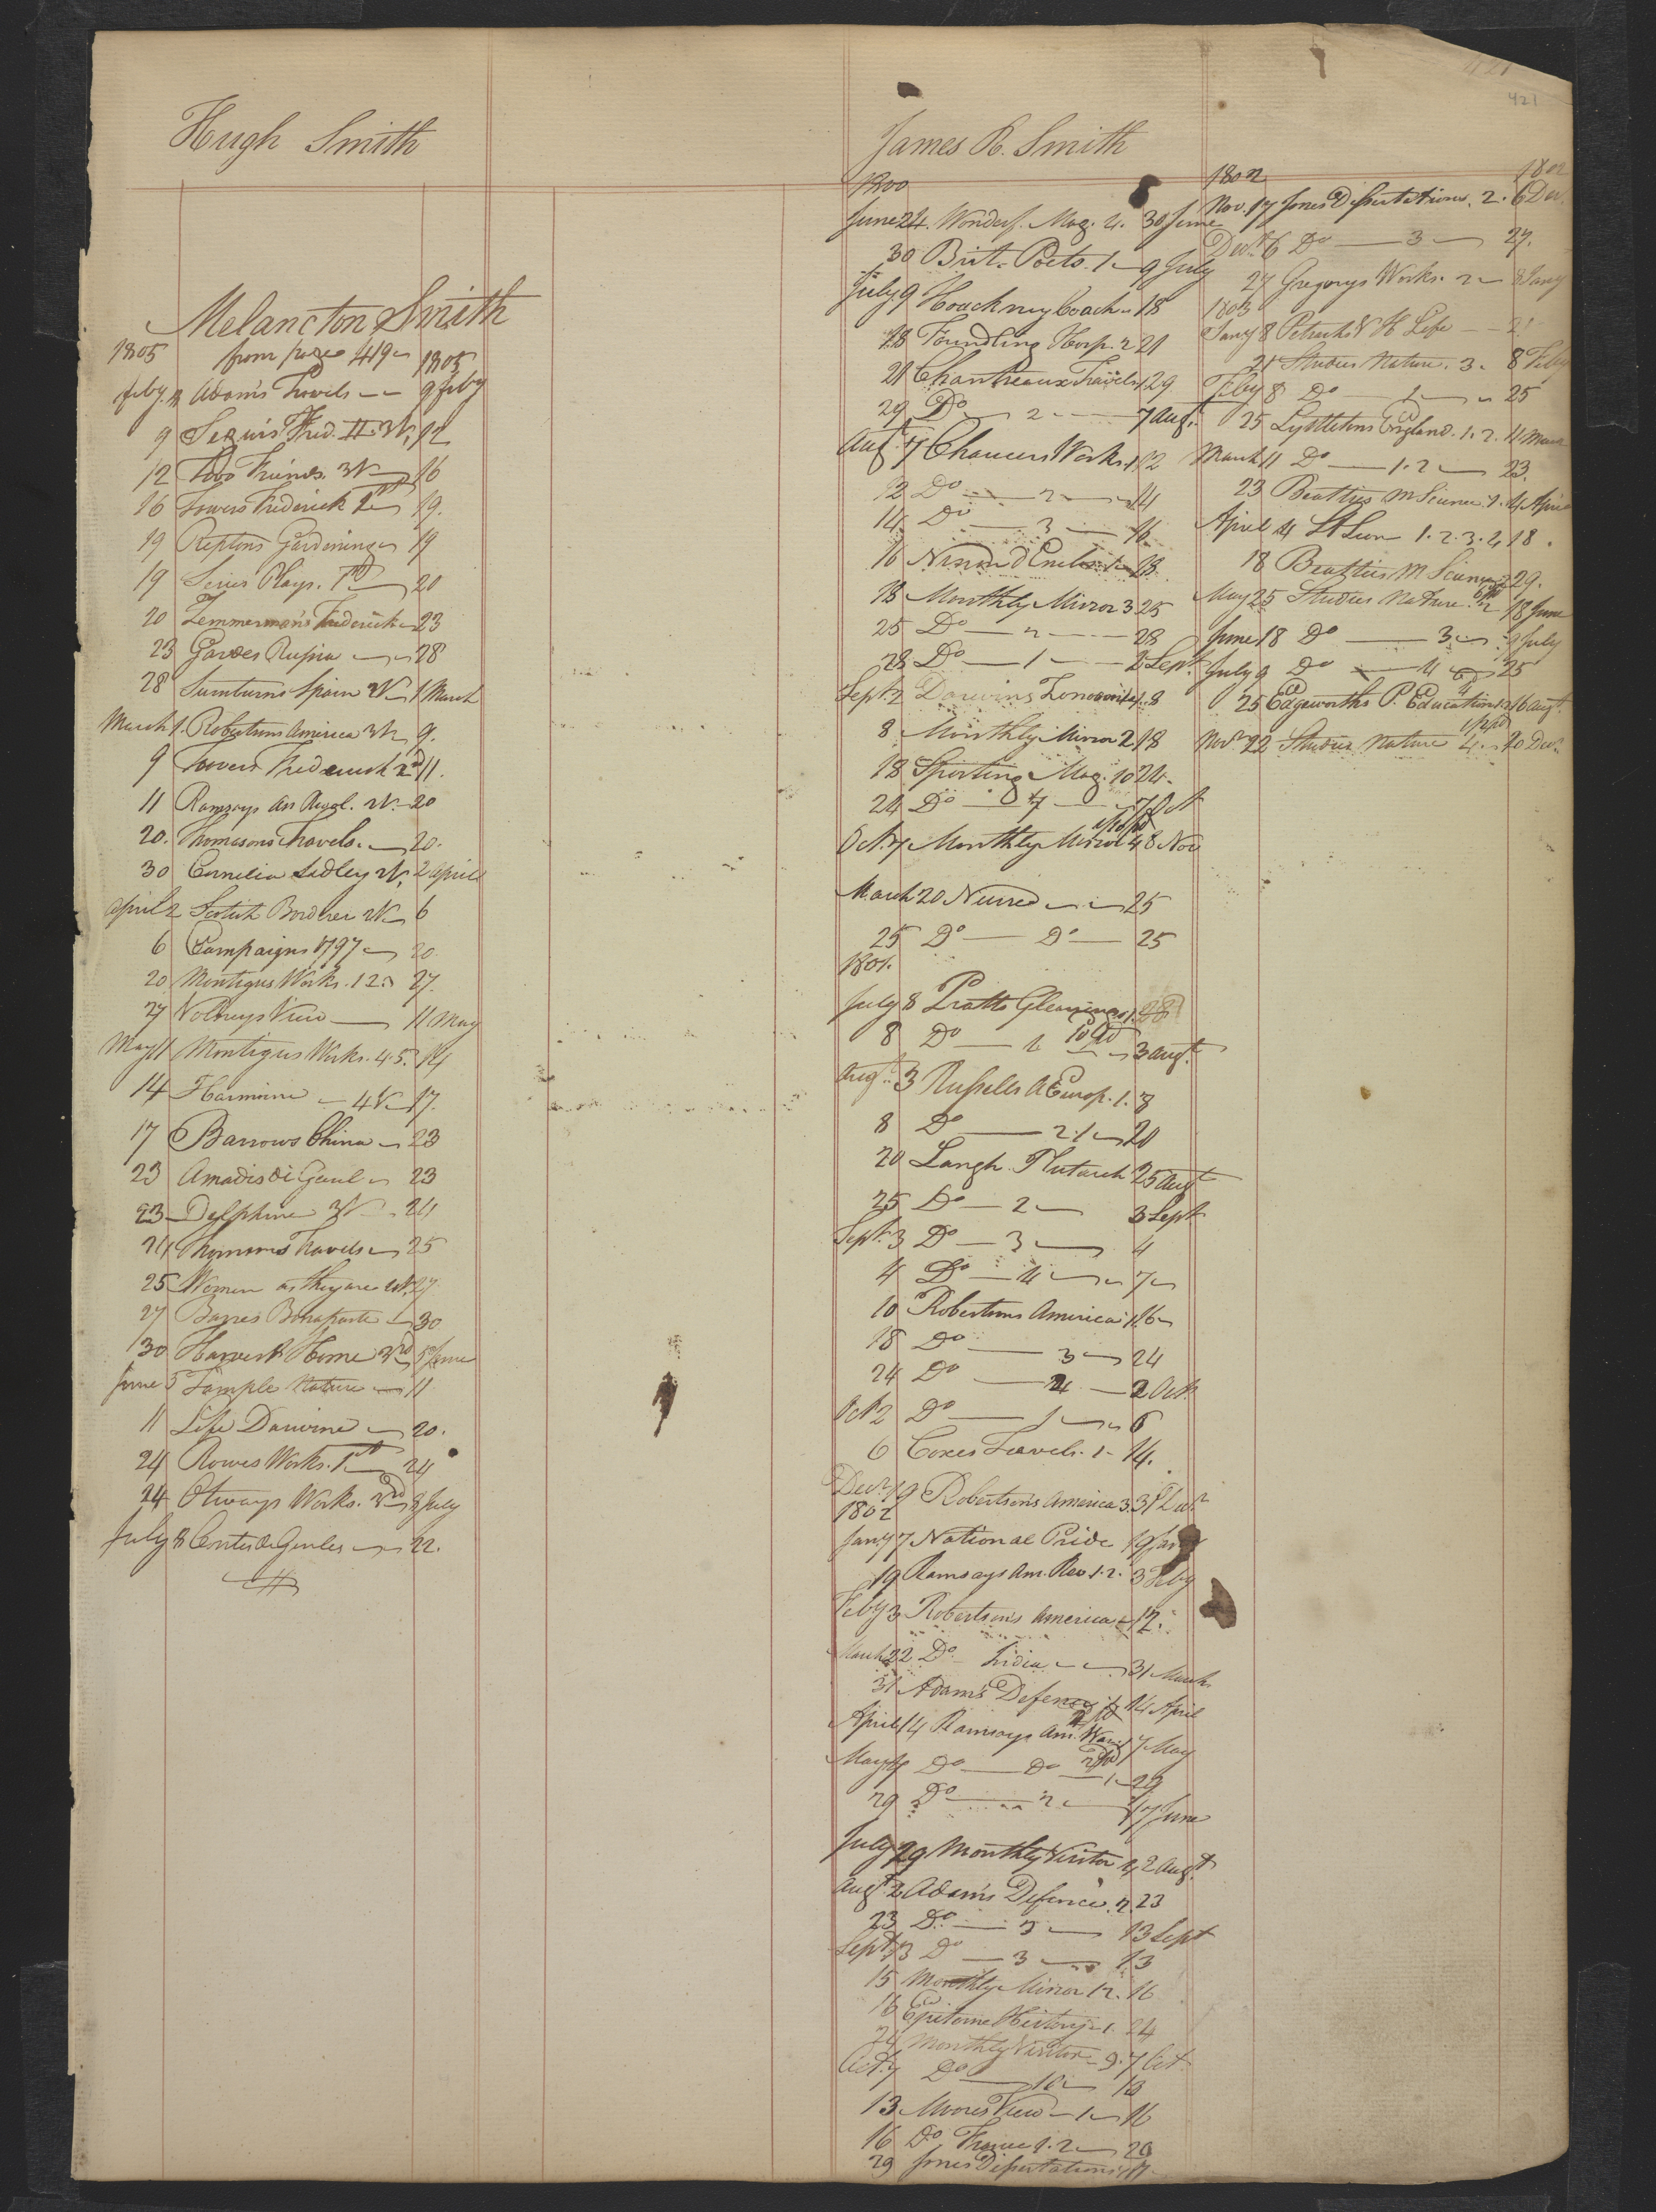 421
421
Hugh Smith
Melancton Smith
1805 from page 419 1805
Feby. Adams Travels 9 Feby
9 Segurs Fred. II. 3V. 12
12 Two Friends. 3V 16
16 Towers Frederick 19.
19 Reptons Gardening 19
19 Series Plays. 20
20 Zemmermans Frederick 23
23 Russia 28
28 Spain 2V 1 March
March 1. Robertsons America 3V 9.
9 Towers Frederick 2d 11.
11 Ramsays 2V. 20
20. Thomsons Travels. 20.
30 Cornelia Sedley 2V. 2 April
April 2 Scotish Borderer 2V 6
6 Campaigns 1797 20.
20 Montigus Works. 1 2. 27.
27 Volneys View 11 May
May 11 Montigus Works. 4. 5. 14
14 Harmoine 4V 17.
17 Barrows China 23
23 Amadis de Gaul 23
23 Delphine 3V 24
24 Travels 25
25 Women as they are 27
27 Barres Bonaparte 30
30 Harvest Home 3rd 5 June
June 5 Temple Nature 11
11 Life Darwine 20.
24 Rowes Works. 1st 24
24 Otways Works. 3rd 8 July
July 8 22.
James R. Smith
1800
June 24. Wonderf. Mag. 4. 30 June
30 Brit. Poets. 1 9 July
July 9 Hoackney Coach 18
18 Foundling Hosp. 2 21
21 Chantreaux Travels 1 29
29 Do 2 7 Augt.
Augt. 7 Chaucers Works. 1 12
12 Do 2 14
14. Do 3 16
16 Ninon d'Enclos 18
18 Monthly Mirror 3 25
25 Do 2 28
28 Do 1 2 Sept.
Sept. 2 Darwins Zonomia 1. 8
8 Monthly Mirror 2 18
18 Sporting Mag. 10 24.
24 Do 7 7 Oct
Oct. 7 Monthly Mirror 4 8 Nov
March 20 25
25 Do Do 25
1801.
July 8 Pratts Gleanings 1. 28
8 Do 1 10 pd 3 Augt.
Augt. 3 Russells A Europ. 1. 8
8 Do 2. 1 20
20 Langh. Plutarch 25 Augt
25 Do 2 3 Sept
Sept. 3 Do 3 4
4 Do 4 7
10 Robertsons America 1 16
18 Do 3 24
24 Do 2 Oct.
Oct 2 Do 1 6
6 Coxes Travels. 1 14.
Decr. 19 Robertsons America 3. 31 Decr
1802
Jany 7 National Pride 19 Jany
19 Ramsays Am. Rev 1. 2. 3 Feby
Feby 3 Robertsons America 12.
March 22 Do India 31 March
31 Adams Defence 14 April
April 14 Ramsays Am. War 7 May
May 7 Do Do 1 29
29 Do 2 17 June
July 29 Monthly Visitor 4 2 Augt.
Augt 2 Adams Defence. 2. 23
23 Do 3 13 Sept
Sept. 13 Do 3 13
15 Monthly Mirror 12. 16
16 Epitome History 1. 24
24 Monthly Visitor 9. 7 Oct.
Oct. 7 Do 10 13
13 Moores View 1 16
16 Do France 1. 2 20
29 Jones Disputations 17
1802 1802
Nov. 17 Jones Disputations. 2. 6 Decr.
Decr. 6 Do 3 27.
27 Gregorys Works. 2 8 Jany
1803
Jany 8 Petrarchs Life 21
21 Studies Nature. 3. 8 Feby
Feby 8 Do 1 25
25 Lyttletons England. 1. 2. 11 March
March 11 Do 1. 2 23.
23 Beatties M Science 1. 4 April
April 4 St Leon 1. 2. 3. 4 18.
18 Beatties M Science 2 29.
May 25 Studies Nature. 2 18 June
June 18 Do 3 9 July
July 9 Do 4 25
25 Edgeworths P. Education 16 Augt.
Novr. 22 Studies Nature 4. 20 Decr.